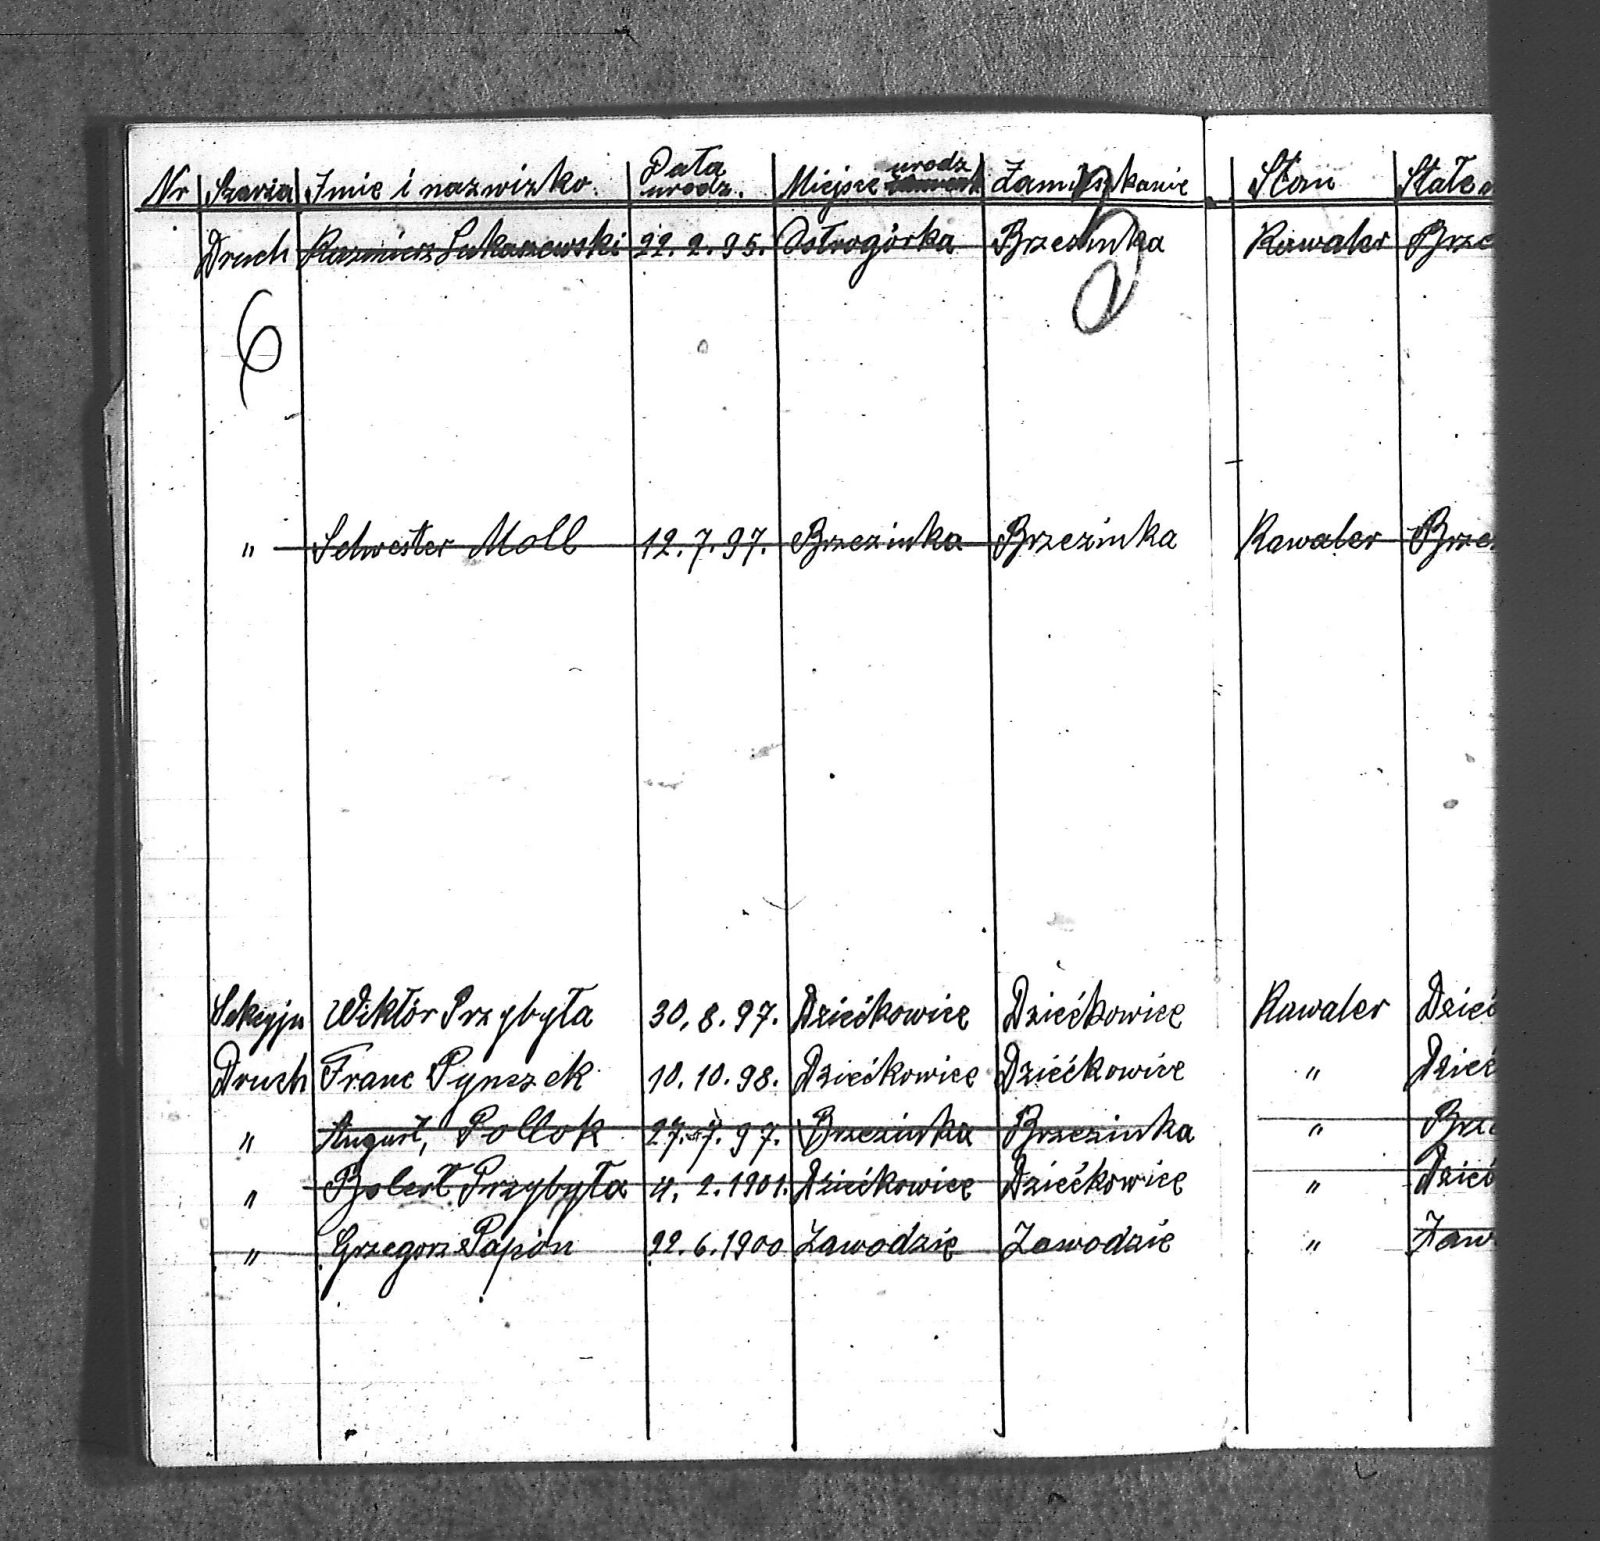 Nr Szarża Imie i nazwizko. Data urodz. Miejsce urodz Zamiszkanie Stan Stałe
Druch Kazmierz Lukaszewski 22. 2. 95. Ostrogórka Brzezinka Kawaler Brze
6
" Selwester Moll 12. 7. 97. Brzezinka Brzezinka Kawaler Brze
Sekcyjn Wiktór Przybyła 30. 8. 97. Dziećkowice Dziećkowice Kawaler Dzieć
Druch Franc Pynczek 10. 10. 98. Dziećkowice Dziećkowice " Dzieć
" August, Pollok 27. 7. 97. Brzezinka Brzezinka " Brze
" Przybyła 4. 2. 1901. Dziećkowice Dziećkowice " Dzieć
" Grzegorz Papión 22. 6. 1900 Zawodzie Zawodzie " Zaw